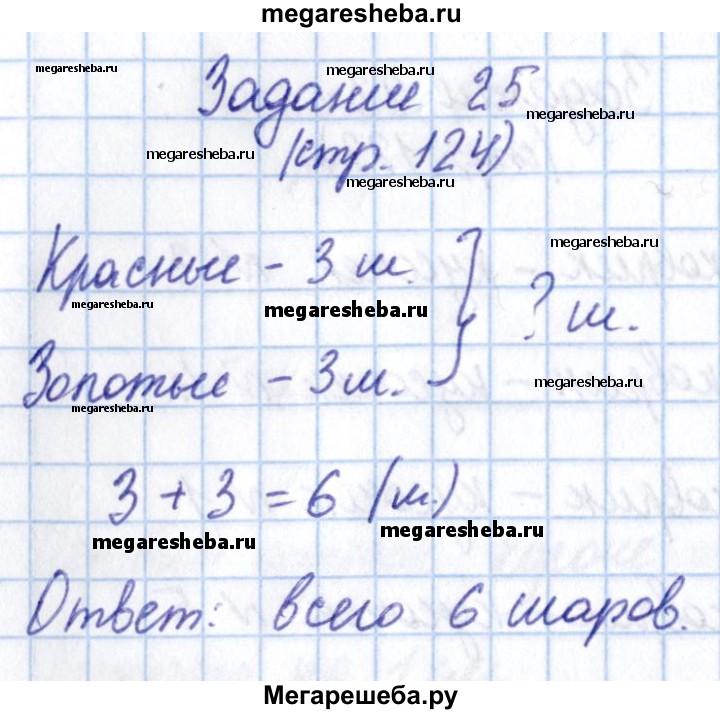 megaresheba.ru
megaresheba.ru
megaresheba.ru
Задание 25
megaresheba.ru
megaresheba.ru
(стр. 124)
megaresheba.ru
Красные - 3 ш.
megaresheba.ru
} ? ш.
megaresheba.ru
megaresheba.ru
Золотые - 3 ш.
megaresheba.ru
megaresheba.ru
3 + 3 = 6 (ш.)
megaresheba.ru
megaresheba.ru
Ответ: всего 6 шаров.
Мегарешеба.ру